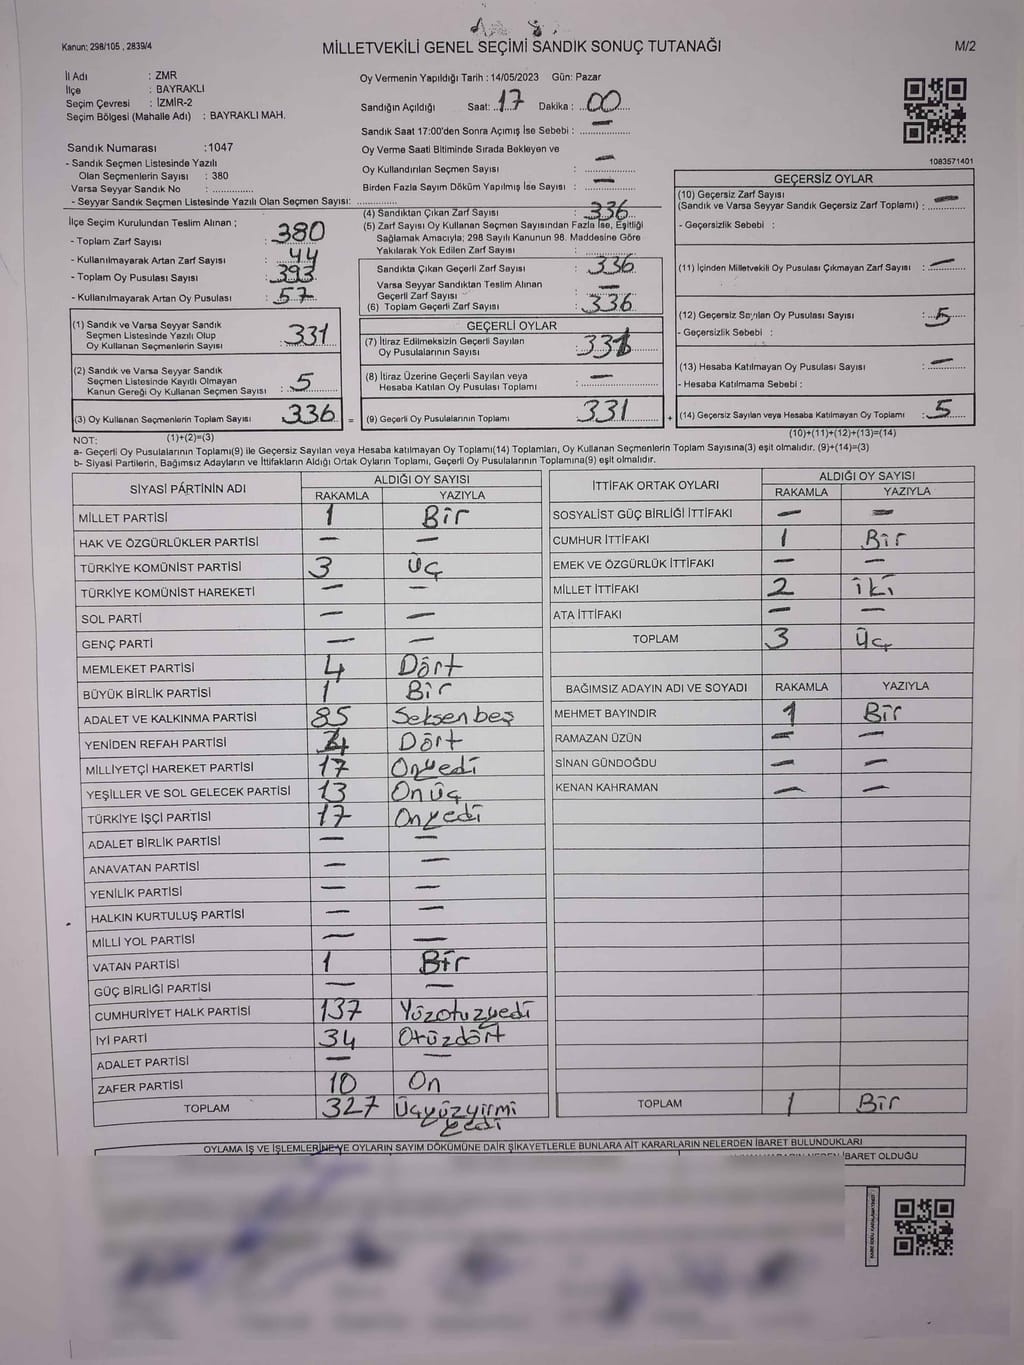 Kanun: 298/105 , 2839/4
MİLLETVEKİLİ GENEL SEÇİMİ SANDIK SONUÇ TUTANAĞI
M/2
İl Adı : ZMR
İlçe : BAYRAKLI
Seçim Çevresi : İZMİR-2
Seçim Bölgesi (Mahalle Adı) : BAYRAKLI MAH.
Sandık Numarası :1047
- Sandık Seçmen Listesinde Yazılı
Olan Seçmenlerin Sayısı : 380
Varsa Seyyar Sandık No :
- Seyyar Sandık Seçmen Listesinde Yazılı Olan Seçmen Sayısı:
Oy Vermenin Yapıldığı Tarih : 14/05/2023 Gün: Pazar
Sandığın Açıldığı Saat: 17 Dakika : 00
Sandık Saat 17:00'den Sonra Açımış İse Sebebi : —
Oy Verme Saati Bitiminde Sırada Bekleyen ve
Oy Kullandırılan Seçmen Sayısı : —
Birden Fazla Sayım Döküm Yapılmış İse Sayısı : —
1083571401
İlçe Seçim Kurulundan Teslim Alınan ;
- Toplam Zarf Sayısı : 380
- Kullanılmayarak Artan Zarf Sayısı : 44
- Toplam Oy Pusulası Sayısı : 393
- Kullanılmayarak Artan Oy Pusulası : 57
(1) Sandık ve Varsa Seyyar Sandık
Seçmen Listesinde Yazılı Olup
Oy Kullanan Seçmenlerin Sayısı : 331
(2) Sandık ve Varsa Seyyar Sandık
Seçmen Listesinde Kayıtlı Olmayan
Kanun Gereği Oy Kullanan Seçmen Sayısı : 5
(3) Oy Kullanan Seçmenlerin Toplam Sayısı : 336 =
(4) Sandıktan Çıkan Zarf Sayısı : 336
(5) Zarf Sayısı Oy Kullanan Seçmen Sayısından Fazla İse, Eşitliği
Sağlamak Amacıyla; 298 Sayılı Kanunun 98. Maddesine Göre
Yakılarak Yok Edilen Zarf Sayısı :
Sandıkta Çıkan Geçerli Zarf Sayısı : 336
Varsa Seyyar Sandıktan Teslim Alınan
Geçerli Zarf Sayısı : —
(6) Toplam Geçerli Zarf Sayısı : 336
GEÇERLİ OYLAR
(7) İtiraz Edilmeksizin Geçerli Sayılan
Oy Pusulalarının Sayısı : 331
(8) İtiraz Üzerine Geçerli Sayılan veya
Hesaba Katılan Oy Pusulası Toplamı : —
(9) Geçerli Oy Pusulalarının Toplamı : 331 +
GEÇERSİZ OYLAR
(10) Geçersiz Zarf Sayısı
(Sandık ve Varsa Seyyar Sandık Geçersiz Zarf Toplamı) : —
- Geçersizlik Sebebi :
(11) İçinden Milletvekili Oy Pusulası Çıkmayan Zarf Sayısı : —
(12) Geçersiz Sayılan Oy Pusulası Sayısı : 5
- Geçersizlik Sebebi :
(13) Hesaba Katılmayan Oy Pusulası Sayısı : —
- Hesaba Katılmama Sebebi :
(14) Geçersiz Sayılan veya Hesaba Katılmayan Oy Toplamı : 5
NOT: (1)+(2)=(3)
(10)+(11)+(12)+(13)=(14)
a- Geçerli Oy Pusulalarının Toplamı(9) ile Geçersiz Sayılan veya Hesaba katılmayan Oy Toplamı(14) Toplamları, Oy Kullanan Seçmenlerin Toplam Sayısına(3) eşit olmalıdır. (9)+(14)=(3)
b- Siyasi Partilerin, Bağımsız Adayların ve İttifakların Aldığı Ortak Oyların Toplamı, Geçerli Oy Pusulalarının Toplamına(9) eşit olmalıdır.
SİYASİ PARTİNİN ADI ALDIĞI OY SAYISI
RAKAMLA YAZIYLA
MİLLET PARTİSİ 1 Bir
HAK VE ÖZGÜRLÜKLER PARTİSİ — —
TÜRKİYE KOMÜNİST PARTİSİ 3 Üç
TÜRKİYE KOMÜNİST HAREKETİ — —
SOL PARTİ — —
GENÇ PARTİ — —
MEMLEKET PARTİSİ 4 Dört
BÜYÜK BİRLİK PARTİSİ 1 Bir
ADALET VE KALKINMA PARTİSİ 85 Seksenbeş
YENİDEN REFAH PARTİSİ 4 Dört
MİLLİYETÇİ HAREKET PARTİSİ 17 Onyedi
YEŞİLLER VE SOL GELECEK PARTİSİ 13 Onüç
TÜRKİYE İŞÇİ PARTİSİ 17 Onyedi
ADALET BİRLİK PARTİSİ — —
ANAVATAN PARTİSİ — —
YENİLİK PARTİSİ — —
HALKIN KURTULUŞ PARTİSİ — —
MİLLİ YOL PARTİSİ — —
VATAN PARTİSİ 1 Bir
GÜÇ BİRLİĞİ PARTİSİ — —
CUMHURİYET HALK PARTİSİ 137 Yüzotuzyedi
İYİ PARTİ 34 Otuzdört
ADALET PARTİSİ — —
ZAFER PARTİSİ 10 On
TOPLAM 327 Üçyüzyirmi
yedi
İTTİFAK ORTAK OYLARI ALDIĞI OY SAYISI
RAKAMLA YAZIYLA
SOSYALİST GÜÇ BİRLİĞİ İTTİFAKI — —
CUMHUR İTTİFAKI 1 Bir
EMEK VE ÖZGÜRLÜK İTTİFAKI — —
MİLLET İTTİFAKI 2 iki
ATA İTTİFAKI — —
TOPLAM 3 Üç
BAĞIMSIZ ADAYIN ADI VE SOYADI RAKAMLA YAZIYLA
MEHMET BAYINDIR 1 Bir
RAMAZAN ÜZÜN — —
SİNAN GÜNDOĞDU — —
KENAN KAHRAMAN — —
TOPLAM 1 Bir
OYLAMA İŞ VE İŞLEMLERİNE VE OYLARIN SAYIM DÖKÜMÜNE DAİR ŞİKAYETLERLE BUNLARA AİT KARARLARIN NELERDEN İBARET BULUNDUKLARI
İBARET OLDUĞU